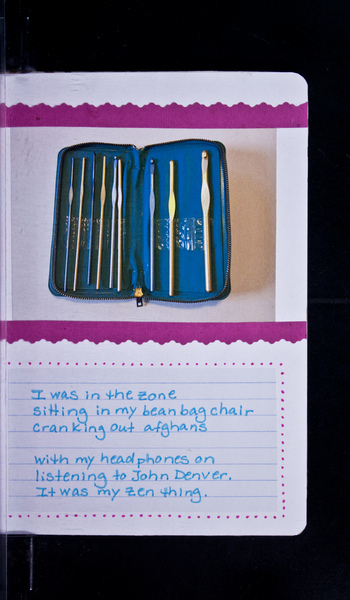 I was in the zone
sitting in my bean bag chair
cranking out afghans
with my headphones on
listening to John Denver.
It was my zen thing.